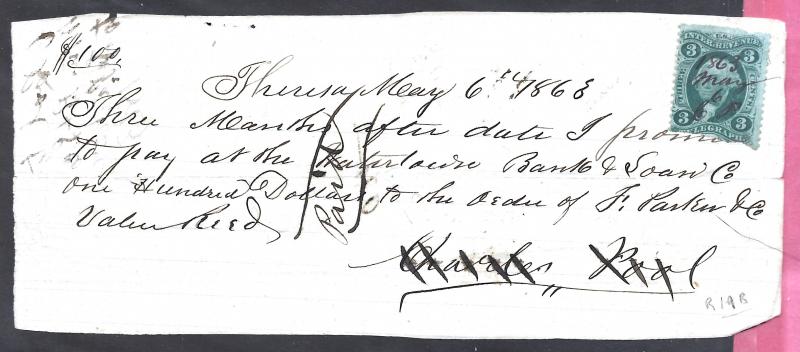 $100.
Theresa May 6th 1863
Three Months after date I promi
to pay at the Watertown Bank & Loan Co
one Hundred Dollars, to the order of F. Parker & Co
Value Recd
Paid
Charles Pool
U.S.
INTER. REVENUE
3 3
THREE CENTS
1863
May
6
3 TELEGRAPH 3
R19B